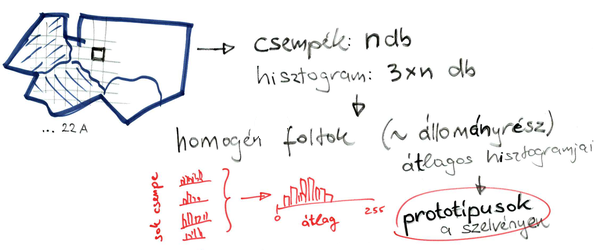 csempék: ndb
hisztogram: 3×n db
... 22A
homogén foltok (~ állományrész)
átlagos hisztogramjai
sok csempe
0 átlag 255
prototípusok
a szelvényen